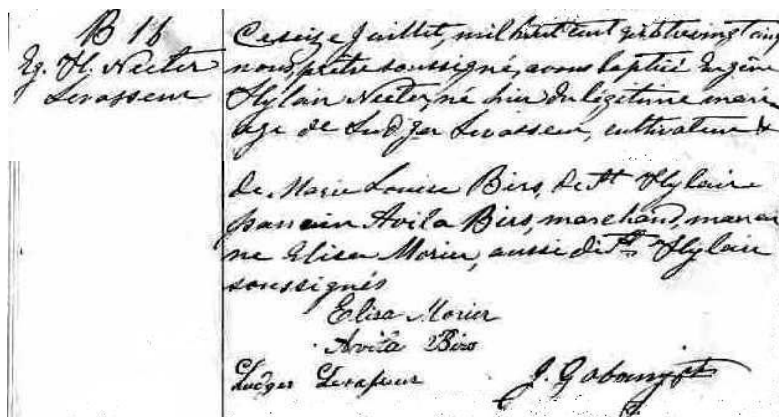 B 16
Eg. H. Necter
Levasseur
Ce seize Juillet, mil huit cent quatrevingt cinq
nous, prêtre soussigné, avons baptisé Eugène
Hylair Necter, né hier du légitime mari
age de Ludger Levasseur, cultivateur &
de Marie Louise Birs, de St Hylaire
parrain Avila Birs, marchand, marrai
ne Elisa Morier, aussi de St Hylair
soussignés
Elisa Morier
Avila Birs
Ludger Levasseur
J. Gaboury ptr